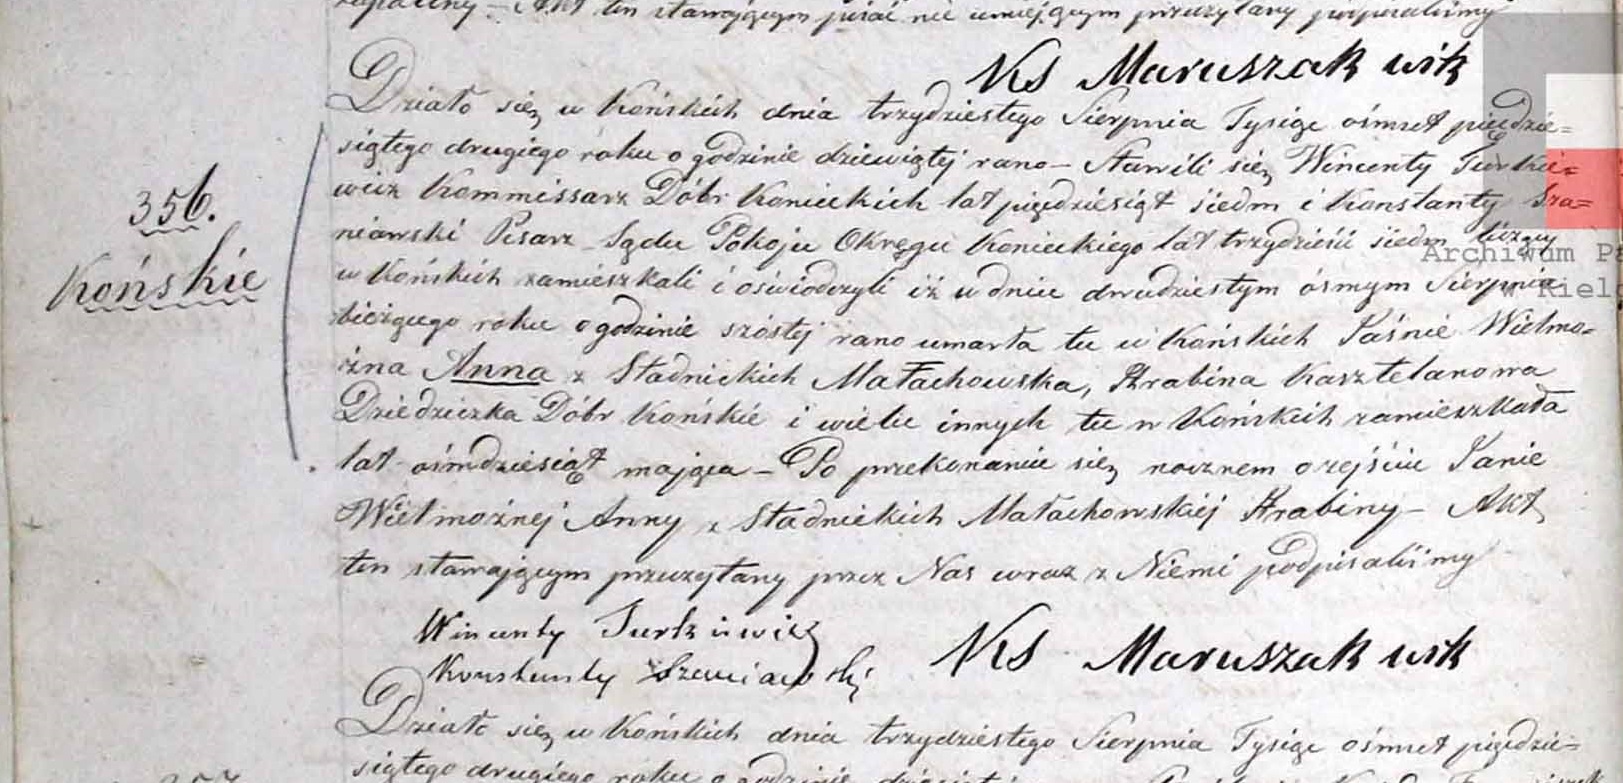 zapalny – Akt ten stawającym pisać nie umiejącym przeczytany podpisaliśmy
Xs Maruszak wik
Działo się w Końskich dnia trzydziestego Sierpnia Tysiąc ośmset pięździe=
siątego drugiego roku o godzinie dziewiątej rano – Stawili się Wincenty Turkie=
wicz Kommissarz Dóbr Konieckich lat pięździesiąt siedm i Konstanty Sza=
niawski Pisarz Sądu Pokoju Okręgu Konieckiego lat trzydzieści siedm liczący
w Końskich zamieszkali i oświadczyli iż w dniu dwudziestym ósmym Sierpnia
bieżącego roku o godzinie szóstej rano umarła tu w Końskich Jaśnie Wielmo=
żna Anna z Stadnickich Małachowska, Hrabina Kasztelanowa
Dziedziczka Dóbr Końskie i wielu innych tu w Końskich zamieszkała
lat ośmdziesiąt mająca – Po przekonaniu się nocznem o zejściu Janie
Wielmożnej Anny z Stadnickich Małachowskiéj Hrabiny – Akt
ten stawającym przeczytany przez Nas wraz z Niemi podpisaliśmy
Wincenty Turkiewicz
Konstanty Szaniawski
Xs Maruszak wik
356.
Końskie
Działo się w Końskich dnia trzydziestego Sierpnia Tysiąc ośmset pięździe=
siątego drugiego roku o godzinie
357
Archiwum Pa
w Kiel